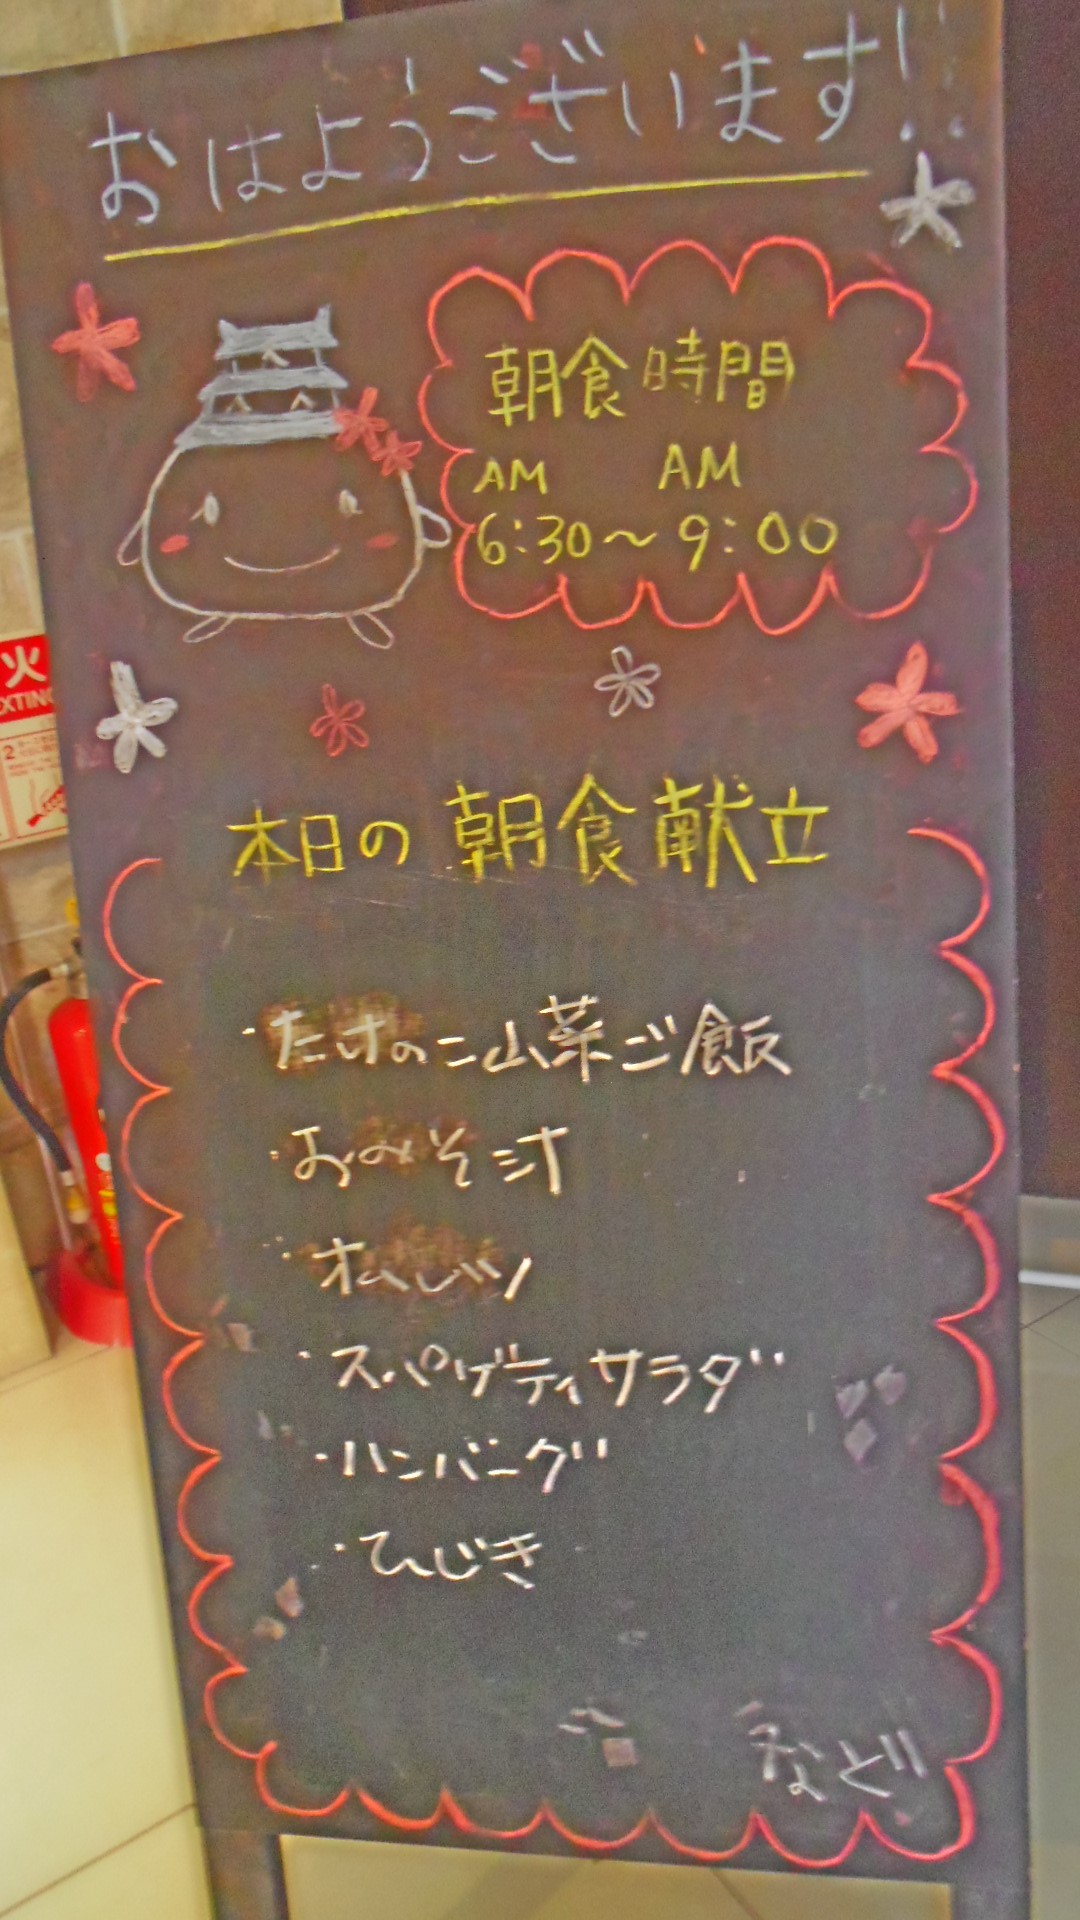 おはようございます!!
朝食時間
AM AM
6:30～9:00
火
2
本日の朝食献立
・たけのこ山菜ご飯
・おみそ汁
・オムレツ
・スパゲティサラダ
・ハンバーグ
・ひじき
など